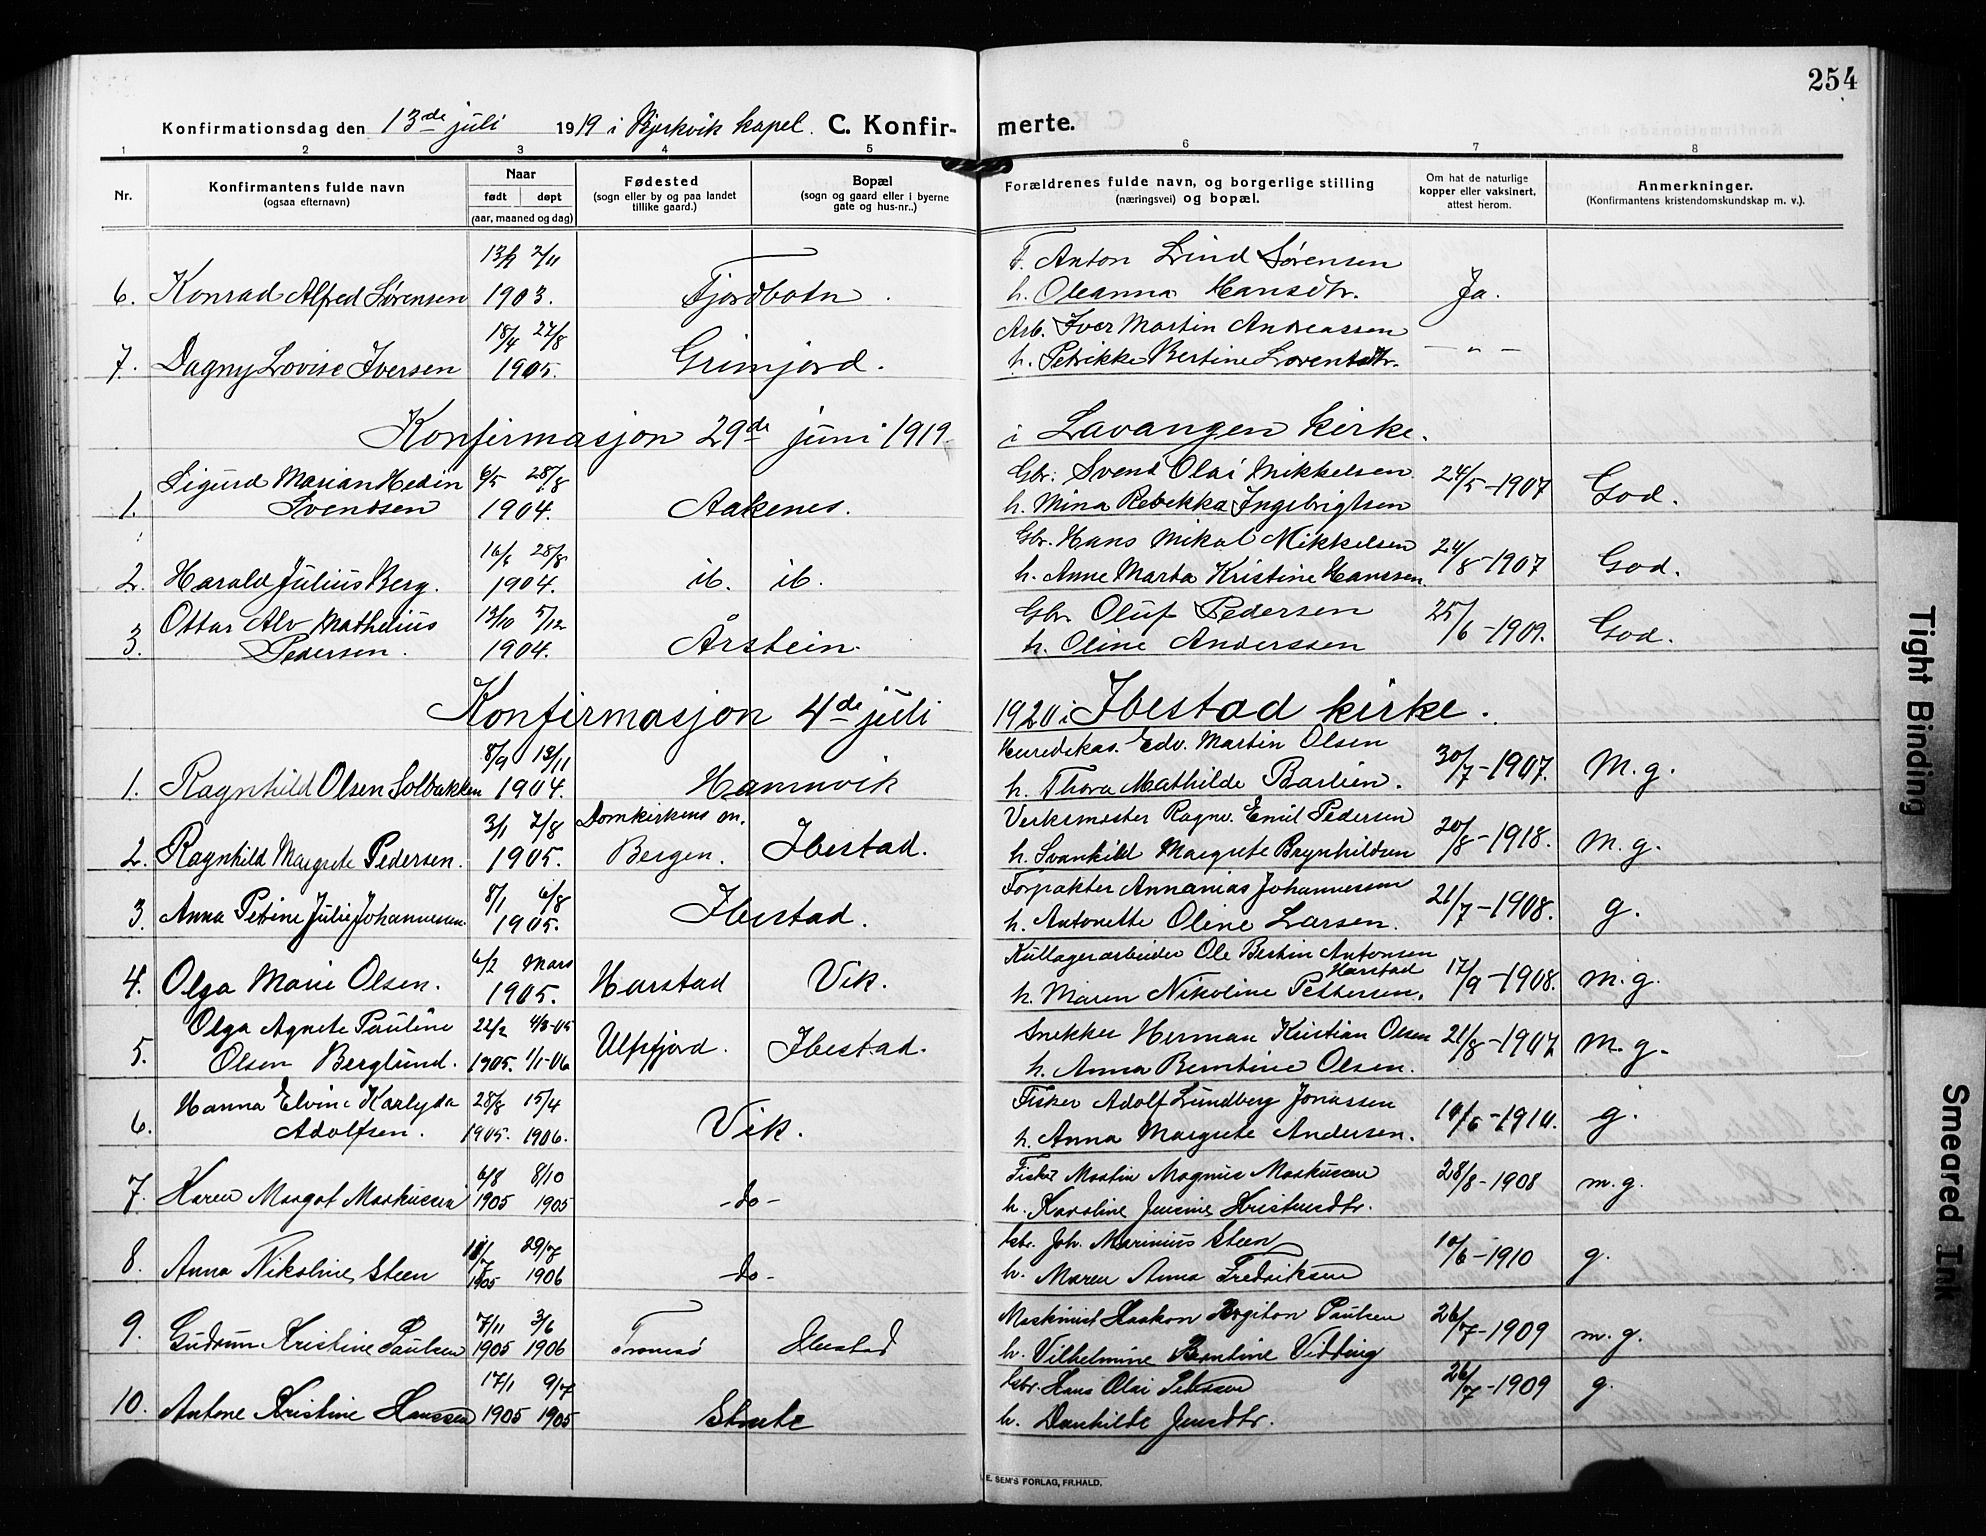 254
Konfirmationsdag den 13de juli 1919 i Bjerkvik kapel. C. Konfir- merte.
1 2 3 4 5 6 7 8
Nr. Konfirmantens fulde navn (ogsaa efternavn) Naar født døpt (aar, maaned og dag) Fødested (sogn eller by og paa landet tillike gaard.) Bopæl (sogn og gaard eller i byerne gate og hus-nr..) Forældrenes fulde navn, og borgerlige stilling (næringsvei) og bopæl. Om hat de naturlige kopper eller vaksinert, attest herom. Anmerkninger. (Konfirmantens kristendomskundskap m. v.).
13/9 2/11 F. Anton Lind Sørensen
6. Konrad Alfred Sørensen 1903. Fjordbotn. h. Oleanna Hansdtr. Ja.
18/4 27/8 Arb. Iver Martin Andreassen
7. Dagny Lovise Iversen 1905. Grimjord. h. Petrikke Bertine Lorentsdtr. — " —
Konfirmasjon 29de juni 1919 i Lavangen kirke.
Sigurd Marian Hedin 6/5 28/8 Gbr. Svend Olai Mikkelsen 24/5-1907
1. Svendsen 1904. Aakenes. h. Mina Rebekka Ingebrigtsen God.
16/6 28/8 Gbr. Hans Mikal Mikkelsen 24/8-1907
2. Harald Julius Berg. 1904. ib. ib. h. Anne Marta Kristine Hanssen. God.
Ottar Alv Mathelius 13/10 5/12 Gbr Oluf Pedersen 25/6-1909.
3. Pedersen. 1904. Årstein. h. Oline Anderssen God.
Konfirmasjon 4de juli 1920 i Ibestad kirke.
8/9 13/11 Herredskas. Edv. Martin Olsen 30/7-1907.
1. Ragnhild Olsen Solbakken 1904. Hamnvik h. Thora Mathilde Barlien. M.g.
3/1 7/8 Domkirkens m. Verksmester Ragnv. Emil Pedersen 20/8-1918.
2. Ragnhild Margrete Pedersen. 1905. Bergen. Ibestad. h. Svanhild Margrete Brynhildsen M.g.
8/1 6/8 Forpakter Annanias Johannesen 21/7-1908.
3. Anna Petrine Julie Johannesen 1905. Ibestad. h. Antonette Oline Larsen. g.
6/2 Mars Kullagerarbeider Ole Bertin Antonsen Harstad 17/9-1908.
4. Olga Marie Olsen. 1905. Harstad Vik. h. Maren Nikoline Pettersen. M.g.
Olga Agnete Pauline 22/2 4/3-05 Snekker Herman Kristian Olsen 21/8-1907
5. Olsen Berglund. 1905. 1/1-06 Ulfsfjord. Ibestad. h. Anna Berntine Olsen. M.g.
Hanna Elvine Karlyda 28/8 15/4 Fisker Adolf Lundberg Jonassen 10/6-1910.
6. Adolfsen. 1905. 1906. Vik. h. Anna Margrete Andersen. g.
6/8 8/10 Fisker Martin Magnus Markussen 28/8-1908
7. Karen Margot Markussen 1905 1905 -do- h. Karoline Jensine Kristensdtr. m.g.
11/7 29/7 Gbr. Joh. Marinius Steen 10/6-1910
8. Anna Nikoline Steen 1905 1906 -do- h. Maren Anna Fredriksen g.
7/11 3/6 Maskinist Haakon Birgiton Paulsen 26/7-1909
9. Gudrun Kristine Paulsen 1905 1906 Tromsø Ibestad h. Vilhelmine Berntine Vidding m.g.
17/1 9/7 Gbr. Hans Olai Petersen 26/7-1909
10. Antone Kristine Hanssen 1905 1905 h. Danhilde Jensdtr. g.
E. SEM'S FORLAG, FR.HALD.
Tight Binding
Smeared Ink